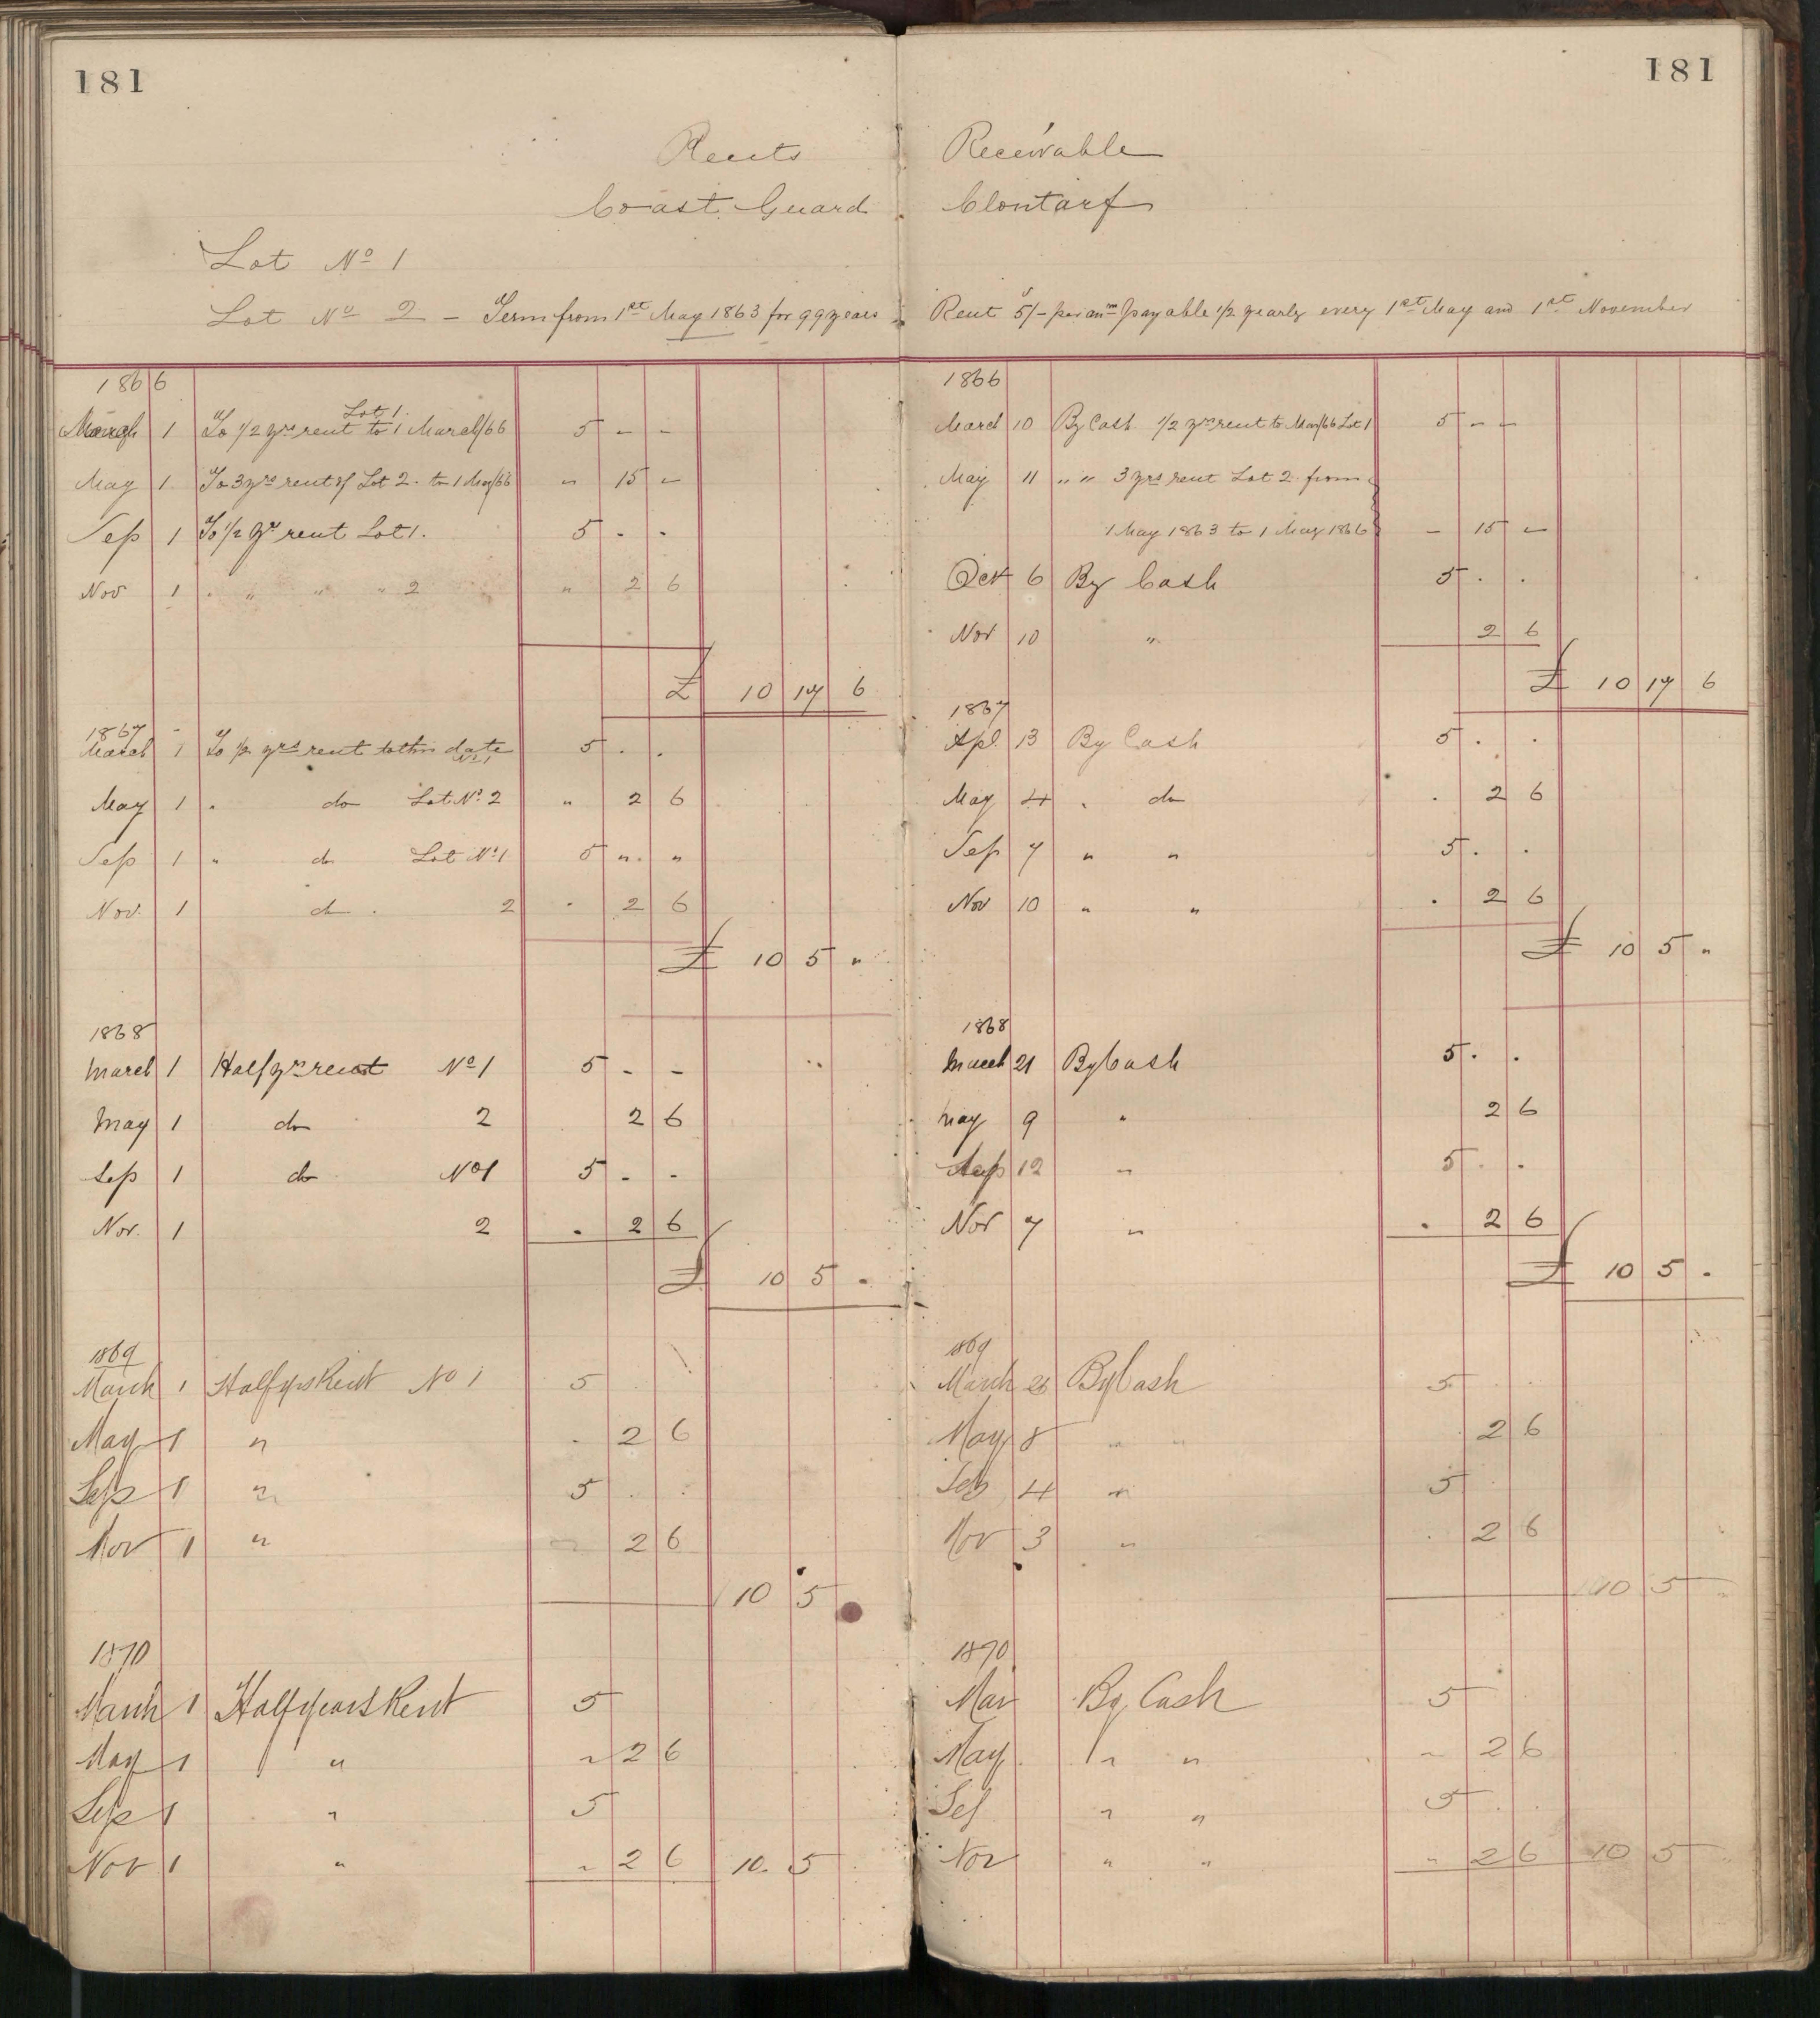 181
Rents
Coast Guard
Lot No 1
Lot No 2 - Term from 1st May 1863 for 99 years
1866
March 1 To 1/2 yrs rent Lot 1. to 1 March/66 5 - -
May 1 To 3 yrs rent of Lot 2. to 1 May/66 " 15 -
Sep 1 To 1/2 yr rent Lot 1. 5 . .
Nov 1 " " " " 2 " 2 6
£ 10 17 6
1867
March 1 To 1/2 yrs rent to this date No 1 5 . .
May 1 " do Lot No 2 " 2 6
Sep 1 " do Lot No 1 5 " "
Nov. 1 do . 2 . 2 6
£ 10 5 "
1868
March 1 Half yrs rent No 1 5 - -
May 1 do 2 2 6
Sep 1 do No 1 5 - -
Nov. 1 2 . 2 6
£ 10 5 .
1869
March 1 Half yrs Rent No 1 5
May 1 " . 2 6
Sep 1 " 5 . .
Nov 1 " 2 6
10 5
1870
March 1 Half years Rent 5
May 1 " " 2 6
Sep 1 " 5
Nov 1 " " 2 6 10. 5
181
Receivable
Clontarf
Rent 5/- per anm payable 1/2 yearly every 1st May and 1st November
1866
March 10 By Cash 1/2 yrs rent to Mar/66 Lot 1 5 - -
May 11 " " 3 yrs rent Lot 2 from
1 May 1863 to 1 May 1866 - 15 -
Oct 6 By Cash 5 . .
Nov 10 " 2 6
£ 10 17 6
1867
Apl 13 By Cash 5 . .
May 4 . do . 2 6
Sep 7 " " 5 . .
Nov 10 " " . 2 6
£ 10 5 "
1868
March 21 By Cash 5 . .
May 9 " 2 6
Sep 12 " 5 . .
Nov 7 " . 2 6
£ 10 5 .
1869
March By Cash 5 . .
May 8 " " 2 6
Sep 4 " 5
Nov 3 " . 2 6
10 5 "
1870
Mar By Cash 5
May " " " 2 6
Sep " " 5 . .
Nov " " " 2 6 10 5